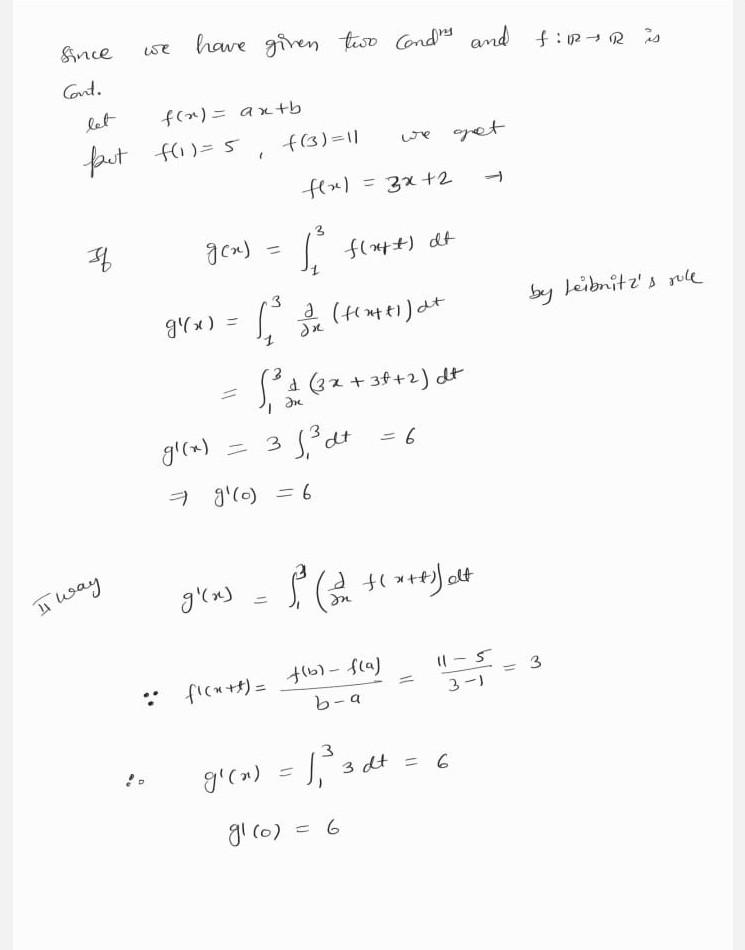 Since we have given two Cond^ns and f : ℝ → ℝ is
Cont.
let f(x) = ax+b
but f(1) = 5 , f(3) = 11 we get
f(x) = 3x + 2 →
If g(x) = ∫₁³ f(x+t) dt
g'(x) = ∫₁³ ∂/∂x (f(x+t)) dt by Leibnitz's rule
= ∫₁³ ∂/∂x (3x + 3t + 2) dt
g'(x) = 3 ∫₁³ dt = 6
⇒ g'(0) = 6
II way g'(x) = ∫₁³ (∂/∂x f(x+t)) dt
∵ f'(x+t) = (f(b) - f(a))/(b - a) = (11 - 5)/(3 - 1) = 3
∴ g'(x) = ∫₁³ 3 dt = 6
g'(0) = 6